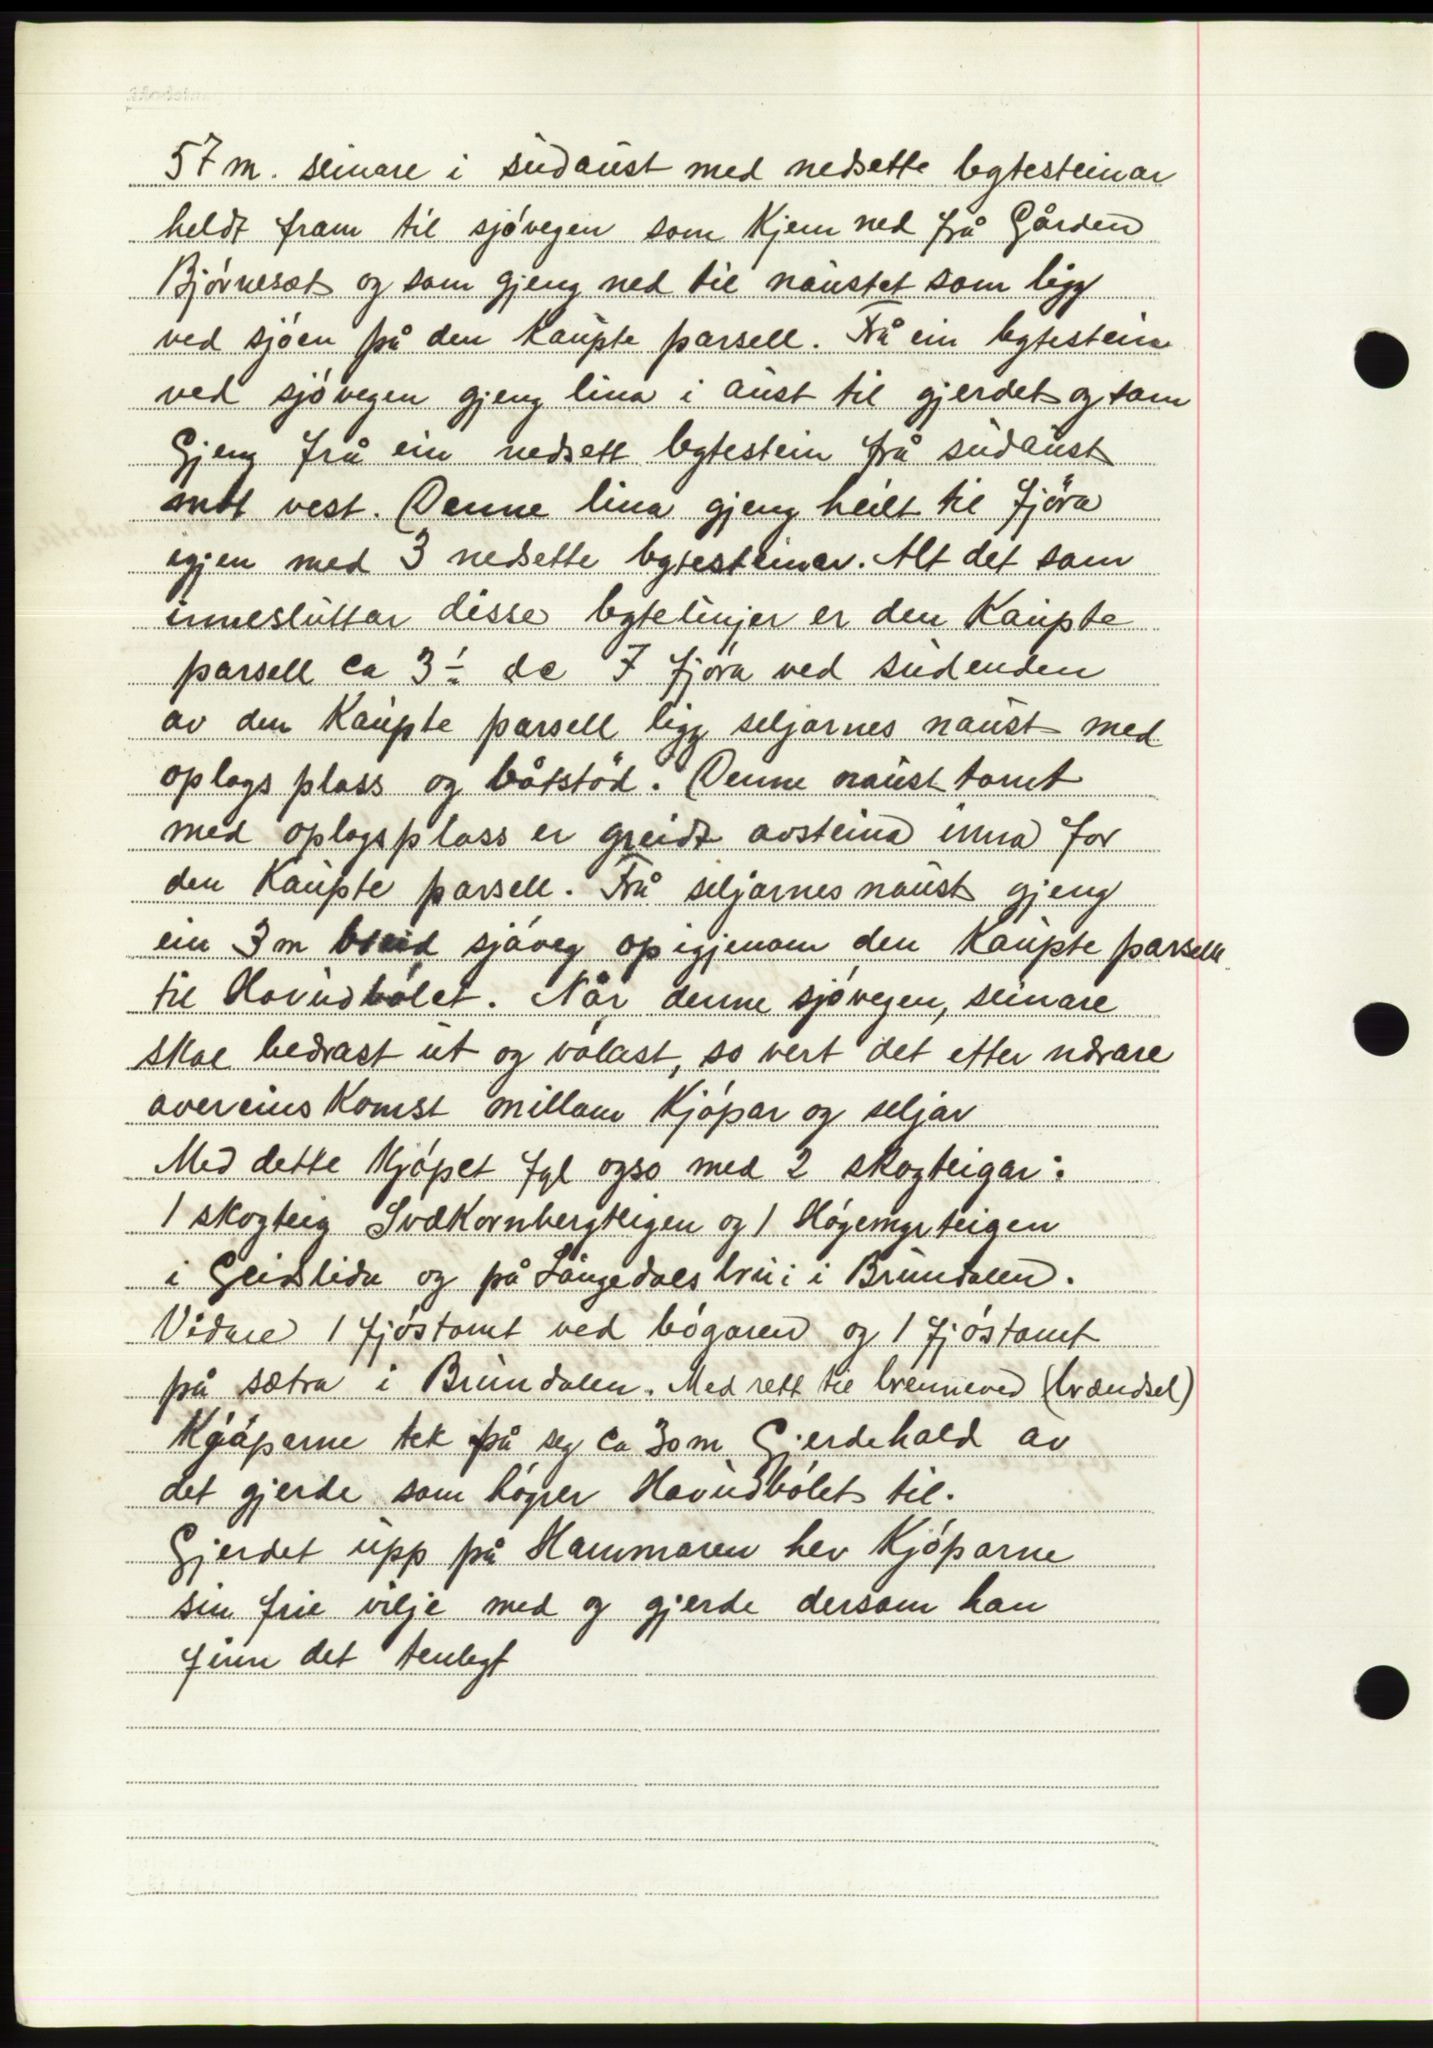 57 m. seinare i südaüst med nedsette bytesteinar
heldt fram til sjóvegen som Kjem ned frå Gården
Bjórneset og som gjeng ned til naüstet som ligg
ved sjóen på den Kaüpte parsell. Frå ein bytestein
ved sjóvegen gjeng lina i aüst til gjerdet og som
Gjeng frå ein nedsett bytestein frå südaüst
mot vest. Denne lina gjeng heilt til fjöra
igjen med 3 nedsette bytesteinar. Alt det som
inneslüttar disse bytelinjer er den Kaüpte
parsell ca 3 da I fjöra ved südenden
av den Kaüpte parsell ligg seljarnes naüst med
oplags plass og båtstöd. Denne naüst tomt
med oplagsplass er greidt avsteina inna for
den Kaüpte parsell. Frå seljarnes naüst gjeng
ein 3 m breid sjóveg op igjenom den Kaüpte parsell
til Hovüdbólet. Når denne sjóvegen, seinare
skal bedrast üt og vólast, so vert det etter nærare
avereinsKomst millom Kjópar og seljar
Med dette Kjópet fyl ogso med 2 skogteigar:
1 skogteig SvæKornbergteigen og 1 Hógemyrteigen
i Geislida og på Langedals brü i Bründalen.
Vidare 1 fjóstomt ved bógaren og 1 fjóstomt
på sætra i Bründalen. Med rett til brenneved (brændsel)
Kjóparne tek på seg ca 30 m Gjerdehald av
det gjerde som hóyrer Hovüdbólet til.
Gjerdet üpp på Hammaren hev Kjóparne
sin frie vilje med og gjerde dersom han
finn det tenlegt